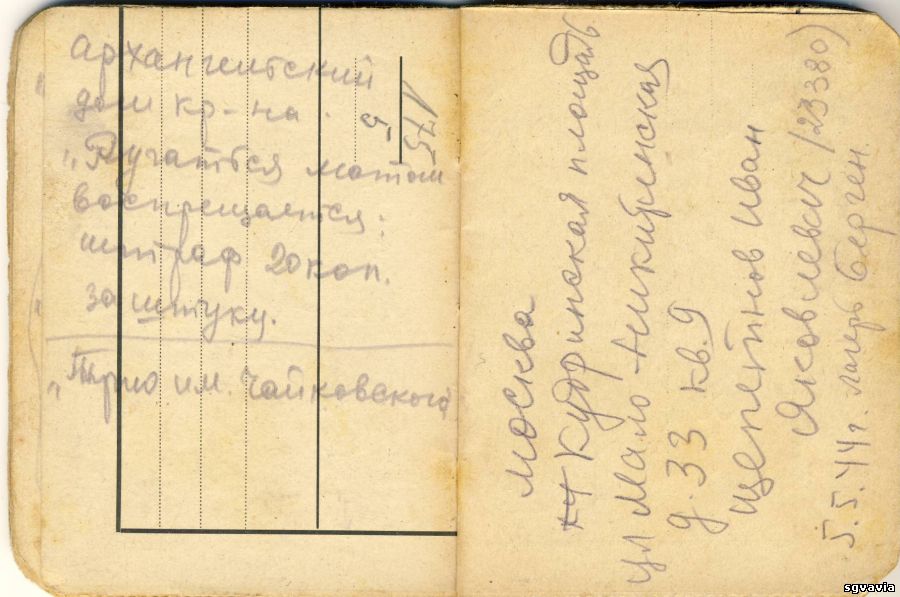 Архангельский
дом кр-на.
"Ругаться матом
воспрещается:
штраф 20 коп.
за штуку.
"Трио им. Чайковского
175
5
Москва
Кудринская площадь
ул Мало Никитенская
д. 33 кв. 9
Щепетнов Иван
Яковлевич /23380)
5.5.44г. лагерь Берген.
sgvavia